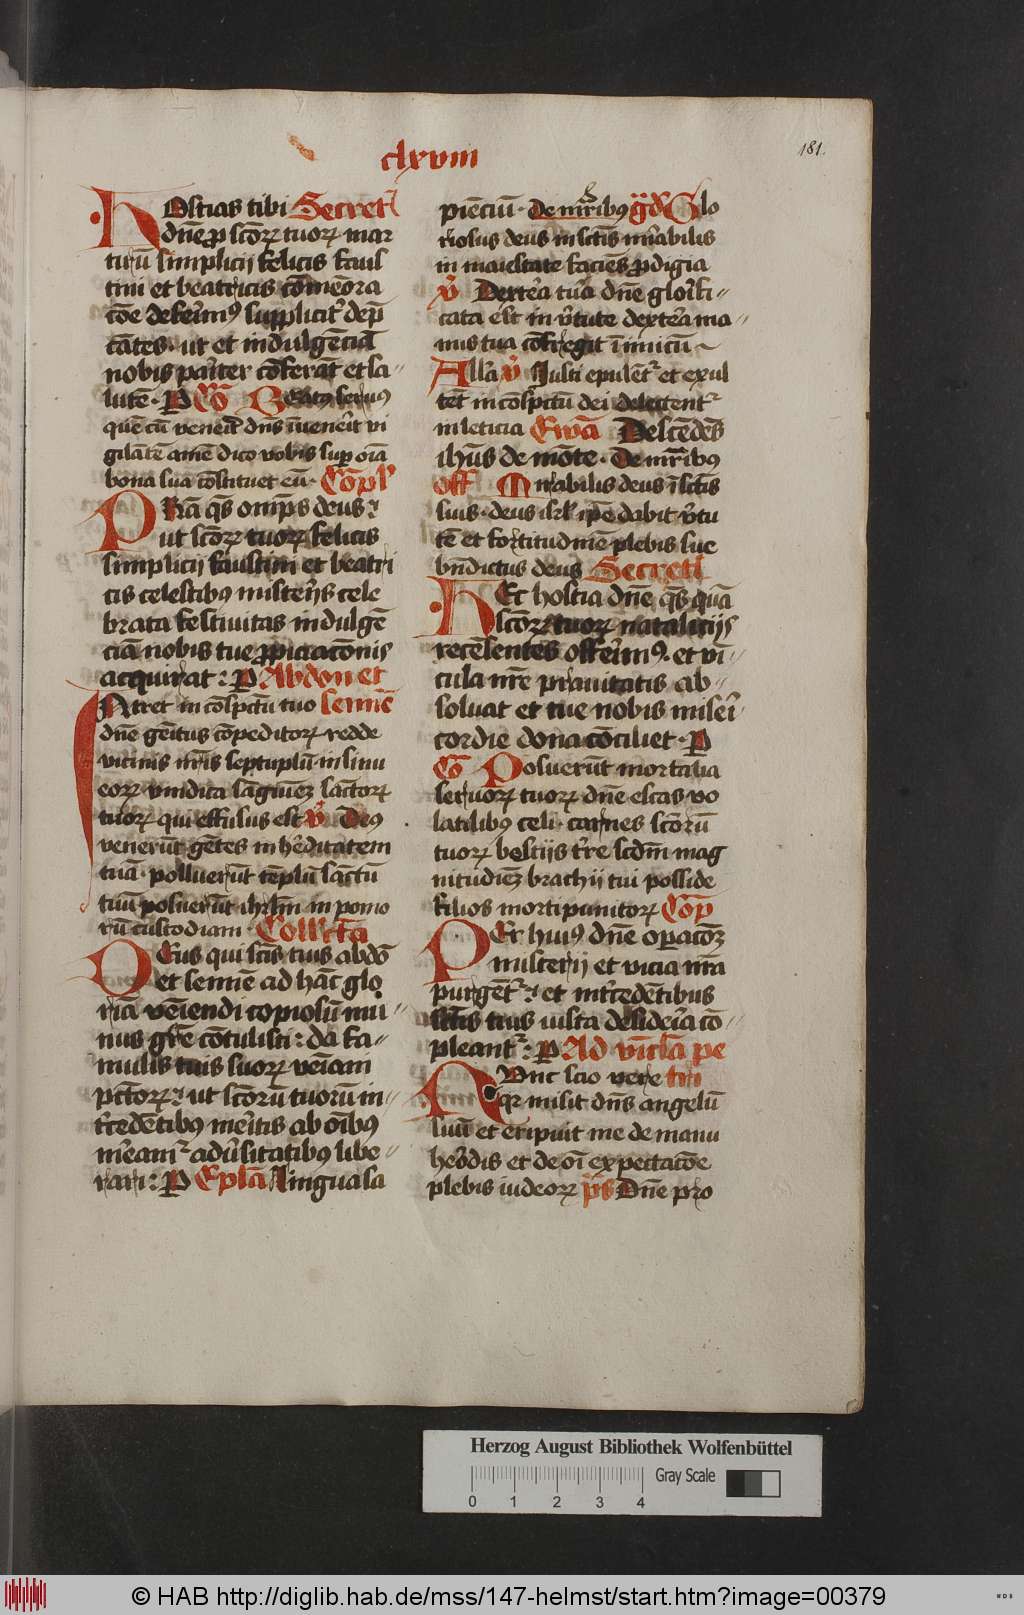 clxviii
181.
Hostias tibi Secret
dn̄e ꝓ sc̄oꝝ tuoꝝ mar
tirū simplicij felicis faus
tini et beatricis cōmēora
cōe deferimꝰ suppliciť dep̄
cātes · ut et indulgēciā
nobis pariter cōferāt et sa⸗
lutē · P Cō Beatꝰ servus
quē cū venerit dn̄s īvenerit vi
gilātē amē dico vobis sup oīa
bona sua cōstituet eū · Cōpl
PRā qs̄ omp̄s deus :
ut sc̄oꝝ tuoꝝ felicis
simplicij faustini et beatri
cis celestibꝰ misterijs cele
brata festivitas indulgē
ciā nobis tue ꝓpiciacōnis
acquirat : P Abdon et
INtret in cōspc̄tu tuo sennē
dn̄e gēitus cōpeditoꝝ redde
vicinis nr̄is septuplū in sinu
eoꝝ vindica sāguinē sāctoꝝ
tuoꝝ qui effusus est v̄ Deꝰ
venerūt gētes in hēditatem
tuā · polluerūt tēplū sāctū
tuū posuerūt ihrlm̄ in pomo
rū custodiam · Collecta
DEus qui sc̄is tuis abdō
et sennē ad hāc glo
riā veniendi copiosū mu⸗
nus grē cōtulisti : da fa⸗
mulis tuis suoꝝ veniam
pc̄toꝝ : ut sc̄orū tuorū in⸗
tc̄edētibus meritis ab oībus
m̄eamꝝ adūsitatibꝰ libe⸗
rari : P Ep̄la Lingua sa
piēciū · De mr̄ibꝰ gd̄ Glo
riosus deus in sc̄tis mirabilis
in maiestate faciēs ꝓdigia
v̄ Dextera tua dn̄e glorifi⸗
cata est in v̄tute dextera ma⸗
nus tua cōfregit īimicū
Alla v̄ Iusti epulentꝝ et exul
tēt in cōspc̄tu dei delectentꝝ
in leticia Ewā Descēdēs
ihūs de mōte · De mr̄ibus
Off Mirabilis deus ī sc̄tis
suis · deus isrl ip̄e dabit v̄tu
tē et fortitudīnē plebis sue
bn̄dictus deus Secret
HEc hostia dn̄e qs̄ quā
sc̄oꝝ tuoꝝ natalicijs
recēsentes offerimꝰ · et vī⸗
cula nr̄e pravitatis ab⸗
soluat et tue nobis miseri
cordie dona cōciliet · P
Cō Posuerūt mortalia
servoꝝ tuoꝝ dn̄e escas vo
latilibus celi · carnes sc̄orū
tuoꝝ bestijs tr̄re scdm̄ mag
nitudīez brachij tui posside
filios morti punitoꝝ Cōp
PEr huiꝰ dn̄e opacōez
misterij et vicia nr̄a
purgentꝝ : et intc̄edētibus
sc̄tis tuis iusta desideria cō⸗
pleantꝝ : P Ad vīcla pe
NUnc scio vere tri
qr misit dn̄s angelū
suū et eripuit me de manu
herodis et de oī expectacōe
plebis iudeoꝝ p̄s Dn̄e pro
Herzog August Bibliothek Wolfenbüttel
Gray Scale
0 1 2 3 4
© HAB http://diglib.hab.de/mss/147-helmst/start.htm?image=00379